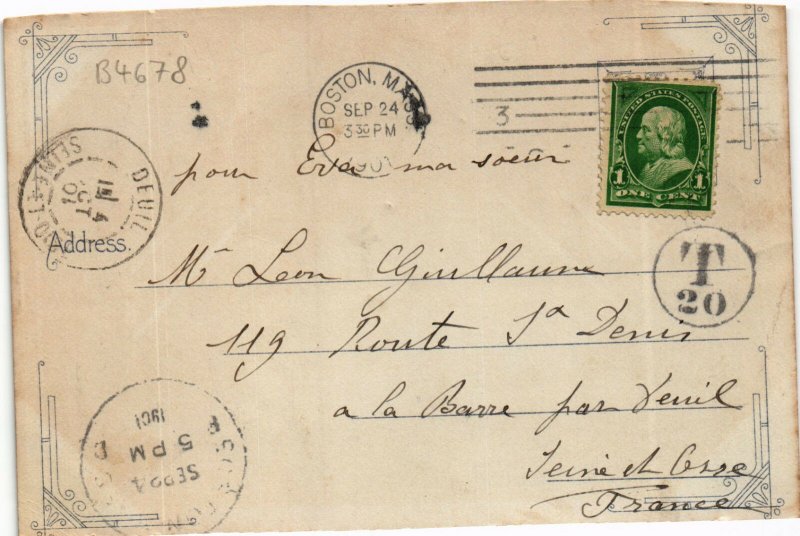 B4678
BOSTON, MASS.
SEP 24
3 30 PM
1901
3
UNITED STATES POSTAGE
1 1
ONE CENT
pour Eva ma soeur
DEUIL
SEINE-ET-O
4
OCT
01
Address.
T
20
Mr Leon Guillaume
119 Route St Denis
a la Barre par Deuil
Seine et Oise
France
BOSTON
SEP 24
5 PM
1901